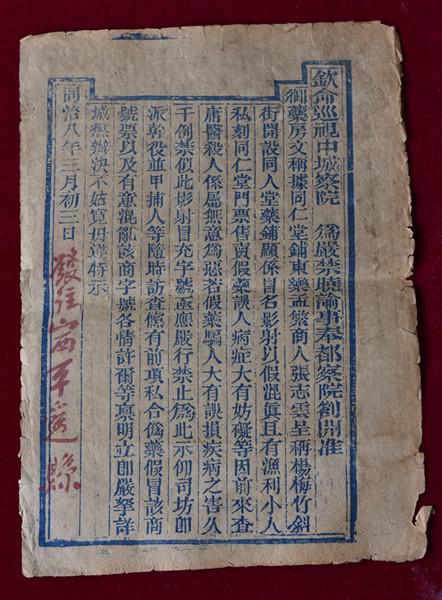 欽命巡視中城察院　為嚴禁曉諭事奉都察院劄開准
御藥房文稱據同仁堂鋪東藥孟繁商人張志雲呈稱楊梅竹斜
街開設同人堂藥鋪顯係冒名影射以假混真且有漁利小人
私刻同仁堂門票售賣假藥誤人病症大有妨礙等因前來查
庸醫殺人係屬無意為惡若假藥騙人大有誤損疾病之害久
干例禁似此影射冒充字號亟應嚴行禁止為此示仰司坊即
派幹役並甲捕人等隨時訪查儻有前項私合偽藥假冒該商
號票以及有意混亂該商字號各情許爾等稟明立即嚴拏詳
城懲辦決不姑寬毋違特示
同治八年三月初三日
發往山西平遥縣